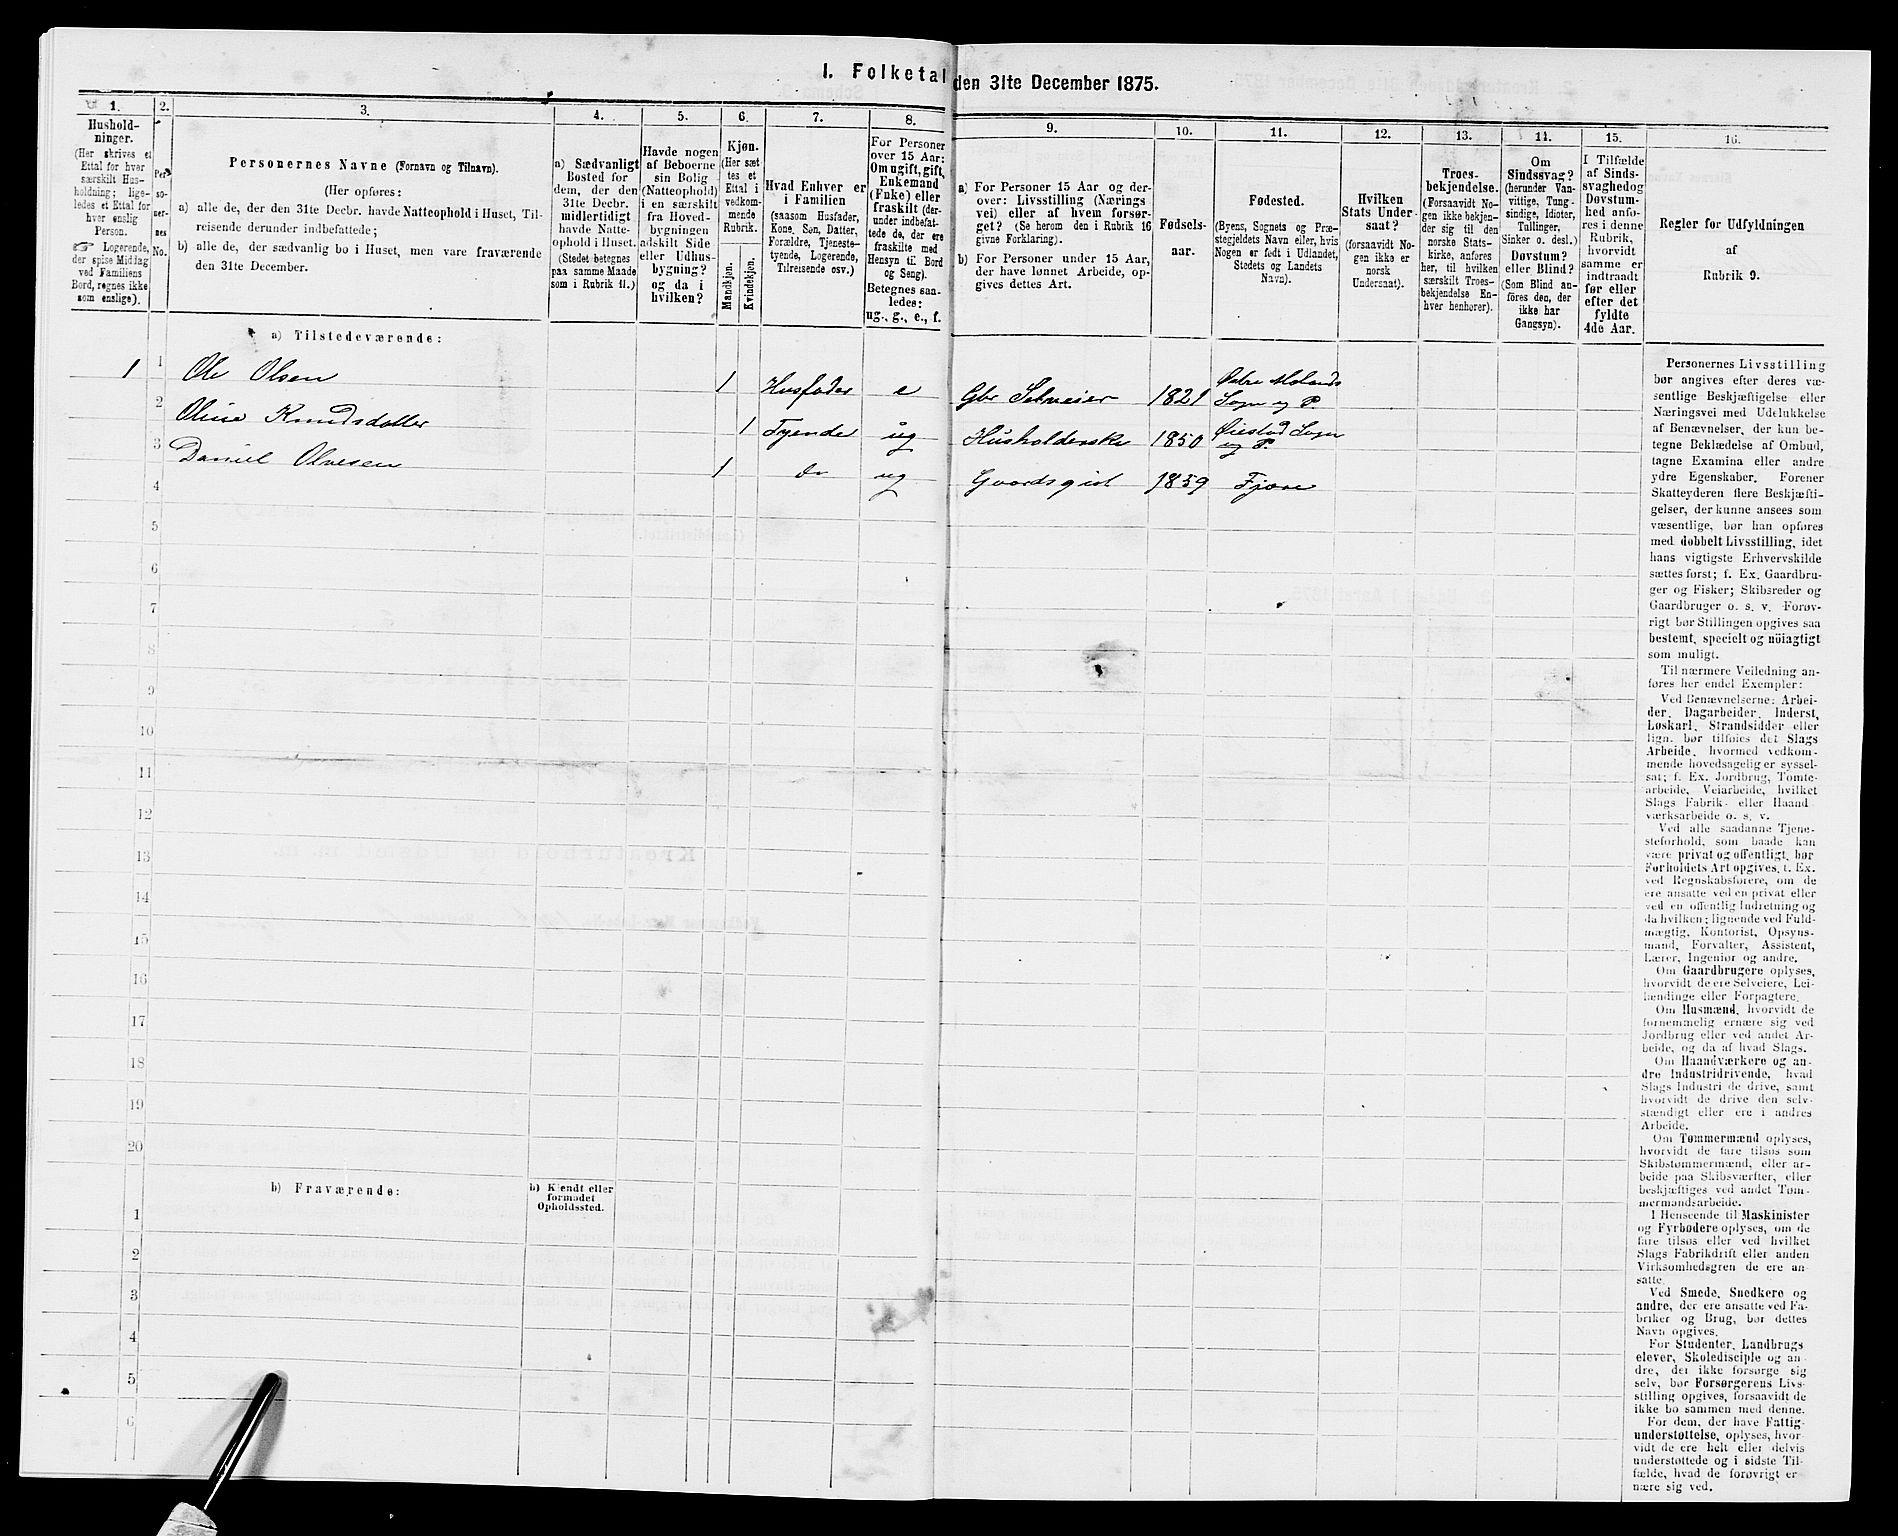 I. Folketal den 31te December 1875.
1. 2. 3. 4. 5. 6. 7. 8. 9. 10. 11. 12. 13. 14. 15. 16.
Hushold-
ninger.
(Her skrives et
Ettal for hver
særskilt Hus-
holdning; lige-
ledes et Ettal for
hver enslig
Person.
☞ Logerende,
der spise Middag
ved Familiens
Bord, regnes ikke
som enslige).
Per-
so-
ner-
nes
No.
Personernes Navne (Fornavn og Tilnavn).
(Her opføres:
a) alle de, der den 31te Decbr. havde Natteophold i Huset, Til-
reisende derunder indbefattede;
b) alle de, der sædvanlig bo i Huset, men vare fraværende
den 31te December.
a) Sædvanligt
Bosted for
dem, der den
31te Decbr.
midlertidigt
havde Natte-
ophold i Huset.
(Stedet betegnes
paa samme Maade
som i Rubrik 11.)
Havde nogen
af Beboerne
sin Bolig
(Natteophold)
i en særskilt
fra Hoved-
bygningen
adskilt Side
eller Udhus-
bygning?
og da i
hvilken?
Kjøn.
(Her sæt-
tes et
Ettal i
vedkom-
mende
Rubrik.
Mandkjøn.
Kvindekjøn.
Hvad Enhver er
i Familien
(saasom Husfader,
Kone, Søn, Datter,
Forældre, Tjeneste-
tyende, Logerende,
Tilreisende osv.)
For Personer
over 15 Aar:
Om ugift, gift,
Enkemand
(Enke) eller
fraskilt (der-
under indbefat-
tede de, der ere
fraskilte med
Hensyn til Bord
og Seng).
Betegnes saa-
ledes:
ug., g., e., f.
a) For Personer 15 Aar og der-
over: Livsstilling (Nærings
vei) eller af hvem forsør-
get? (Se herom den i Rubrik 16
givne Forklaring).
b) For Personer under 15 Aar,
der have lønnet Arbeide, op-
gives dettes Art.
Fødsels-
aar.
Fødested.
(Byens, Sognets og Præ-
stegjeldets Navn eller, hvis
Nogen er født i Udlandet,
Stedets og Landets
Navn).
Hvilken
Stats Under-
saat?
(forsaavidt No-
gen ikke er
norsk
Undersaat).
Troes-
bekjendelse.
(Forsaavidt No-
gen ikke bekjen-
der sig til den
norske Stats-
kirke, anføres
her, til hvilken
særskilt Troes-
bekjendelse En-
hver henhører).
Om
Sindssvag?
(herunder Van-
vittige, Tung-
sindige, Idioter,
Tullinger,
Sinker o. desl.)
Døvstum?
eller Blind?
(Som Blind an-
føres den, der
ikke har
Gangsyn).
I Tilfælde
af Sinds-
svaghed og
Døvstum-
hed anfø-
res i denne
Rubrik,
hvorvidt
samme er
indtraadt
før eller
efter det
fyldte
4de Aar.
Regler for Udfyldningen
af
Rubrik 9.
a) Tilstedeværende:
1 1 Ole Olsen 1 Husfader e Gbr Selveier 1821 Østre Molands Sogn og P.
2 Oline Knudsdatter 1 Tyende ug Husholderske 1850 Øiestad Sogn og P.
3 Daniel Olvesen 1 do ug Gaardsgut 1859 Fjære
4
5
6
7
8
9
10
11
12
13
14
15
16
17
18
19
20
b) Fraværende:
b) Kjendt eller
formodet
Opholdssted.
1
2
3
4
5
6
Personernes Livsstilling
bør angives efter deres væ-
sentlige Beskjæftigelse eller
Næringsvei med Udelukkelse
af Benævnelser, der kun be-
tegne Beklædelse af Ombud,
tagne Examina eller andre
ydre Egenskaber. Forener
Skatteyderen flere Beskjæfti-
gelser, der kunne ansees som
væsentlige, bør han opføres
med dobbelt Livsstilling, idet
hans vigtigste Erhvervskilde
sættes først; f. Ex. Gaardbru-
ger og Fisker; Skibsreder og
Gaardbruger o. s. v. Forøv-
rigt bør Stillingen opgives saa
bestemt, specielt og nöiagtigt
som muligt.
Til nærmere Veiledning an-
føres her endel Exempler:
Ved Benævnelserne: Arbei-
der, Dagarbeider, Inderst,
Løskarl, Strandsidder eller
lign. bør tilføies det Slags
Arbeide, hvormed vedkom-
mende hovedsagelig er syssel-
sat; f. Ex. Jordbrug, Tomte-
arbeide, Veiarbeide, hvilket
Slags Fabrik- eller Haand
værksarbeide o. s. v.
Ved alle saadanne Tjene-
steforhold, som baade kan
være privat og offentligt, bør
Forholdets Art opgives, f. Ex.
ved Regnskabsførere, om de
ere ansatte ved en privat eller
ved en offentlig Indretning og
da hvilken; lignende ved Fuld-
mægtig, Kontorist, Opsyns-
mand, Forvalter, Assistent,
Lærer, Ingeniør og andre.
Om Gaardbrugere oplyses,
hvorvidt de ere Selveiere, Lei-
lændinge eller Forpagtere.
Om Husmænd, hvorvidt de
fornemmelig ernære sig ved
Jordbrug eller ved andet Ar-
beide, og da af hvad Slags.
Om Haandværkere og an-
dre Industridrivende, hvad
Slags Industri de drive, samt
hvorvidt de drive den selv-
stændigt eller ere i andres
Arbeide.
Om Tømmermænd oplyses,
hvorvidt de fare tilsøs som
Skibstømmermænd, eller ar-
beide paa Skibsværfter, eller
beskjæftiges ved andet Tøm-
mermandsarbeide.
I Henseende til Maskinister
og Fyrbødere oplyses, om de
fare tilsøs eller ved hvilket
Slags Fabrikdrift eller anden
Virksomhedsgren de ere an-
satte.
Ved Smede, Snedkere og
andre, der ere ansatte ved Fa-
briker og Brug, bør dettes
Navn opgives.
For Studenter, Landbrugs
elever, Skoledisciple og an-
dre, det ikke forsørge sig
selv, bør Forsørgerens Livs-
stilling opgives, forsaavidt de
ikke bo sammen med denne.
For dem, der have Fattig-
understøttelse, oplyses, hvor-
vidt de ere helt eller delvis
understøttede og i sidste Til-
fælde, hvad de forøvrigt er
nære sig ved.